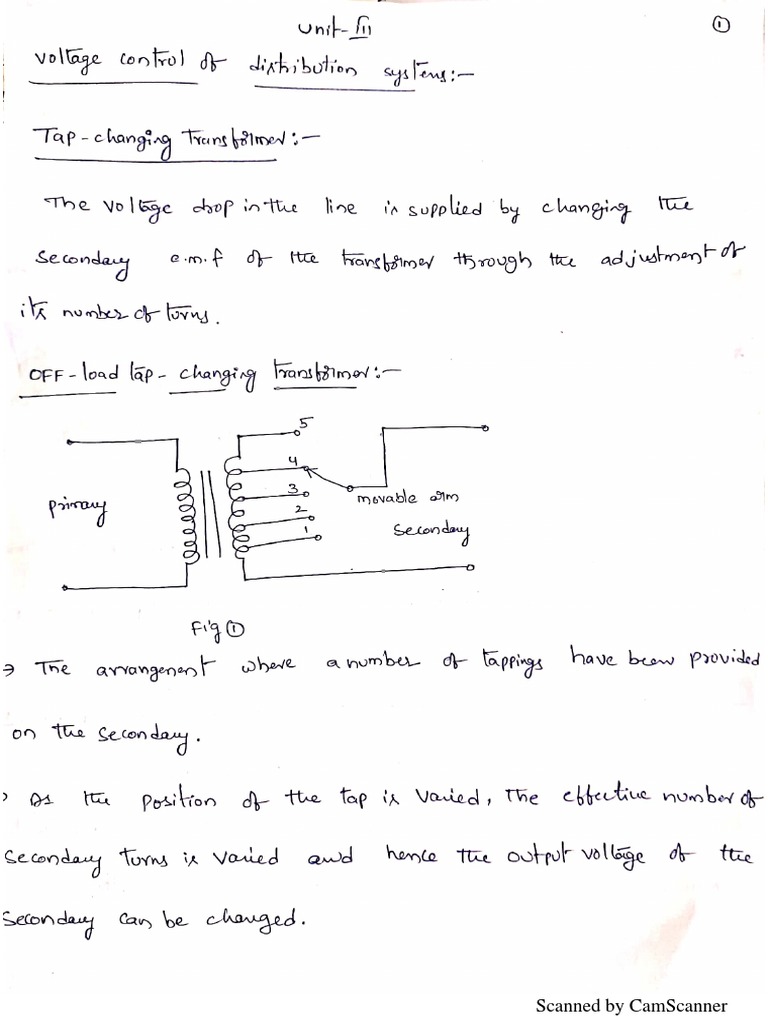 Unit-III
①
Voltage control of distribution systems:-
Tap-changing Transformer:-
The voltage drop in the line is supplied by changing the
secondary e.m.f of the transformer through the adjustment of
its number of turns.
OFF-load tap-changing transformer:-
5
4
3
2
1
primary
movable arm
secondary
Fig ①
→ The arrangement where a number of tappings have been provided
on the secondary.
> As the position of the tap is varied, the effective number of
secondary turns is varied and hence the output voltage of the
secondary can be changed.
Scanned by CamScanner